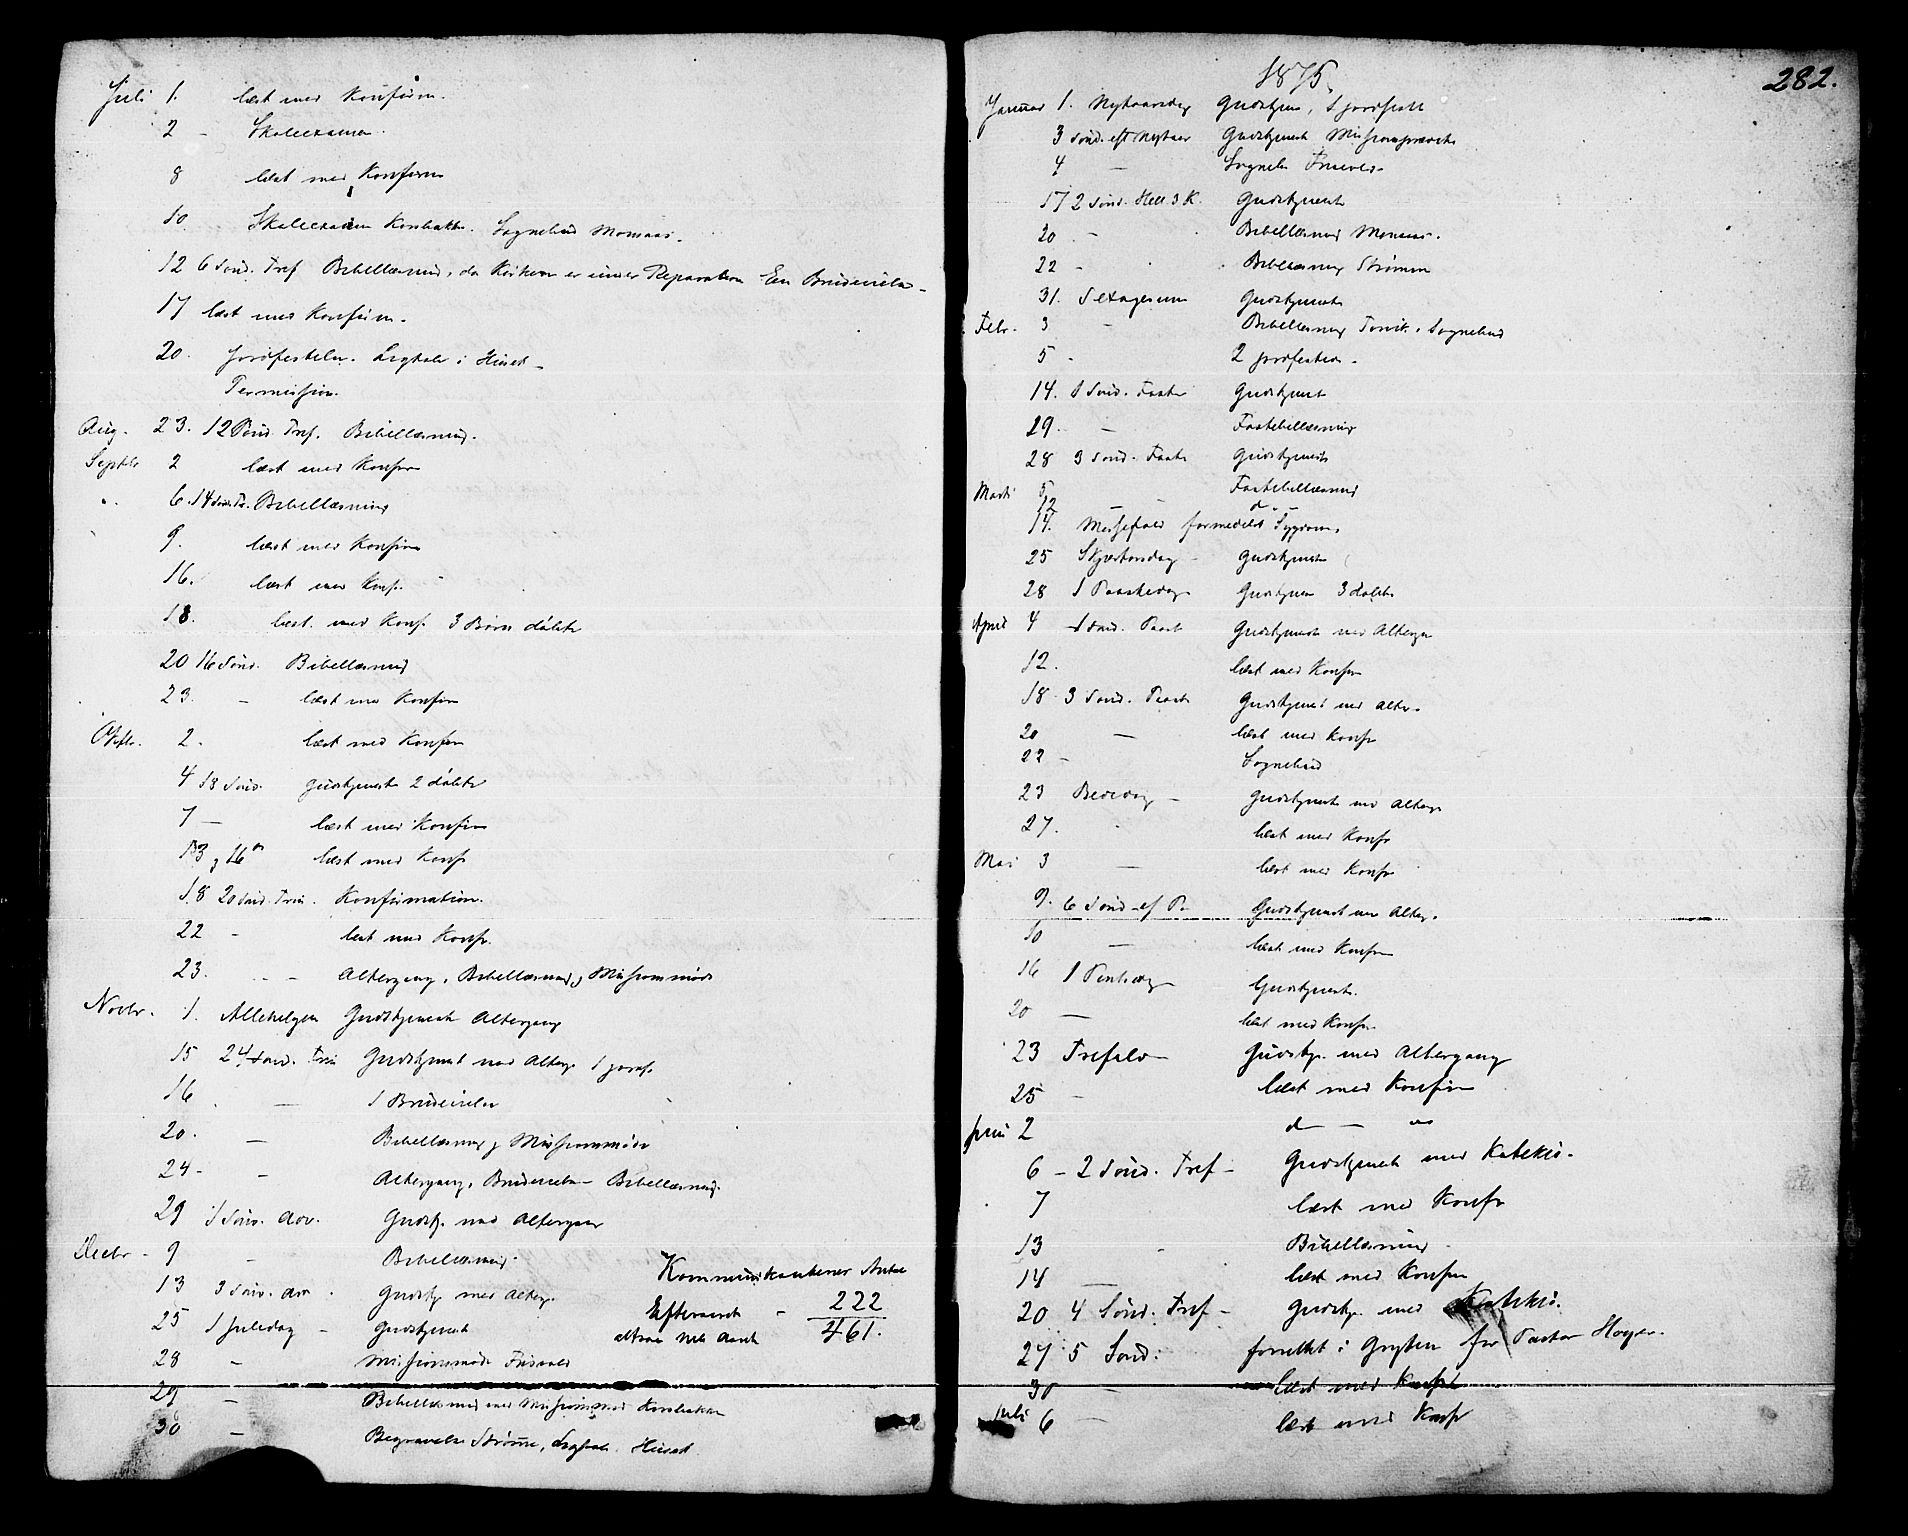 Juli 1. læst med Konfirm.
2 - Skoleexamen.
8 læst med Konfirm
10. Skoleexamen Korsbakke. Sognebud Monsaas.
12 6 Sønd. Tref Bibellæsning, da Kirken er under Reparation En Brudevielse
17 læst med Konfirm.
20. Jordfestelse. Ligtale i Huset
Permission.
Aug. 23. 12 Sønd. Tref. Bibellæsning.
Septbr 2 læst med Konfir
6. 14 Sønd. Tr. Bibellæsning
9. læst med Konfirm
16. læst med Konf.
18. læst med Konf. 3 Børn døbte
20 16 Sønd. Bibellæsning
23. - læst med Konfirm
Oktbr. 2. læst med Konfirm
4 18 Sønd. Gudstjeneste 2 døbte
7 - læst med Konfirm
13 og 16de læst med Konfir
18 20 Sønd. Trin. Konfirmation.
22 - læst med Konfr.
23. - - Altergang, Bibellæsning og Missionsmøde
Novbr. 1. Allehelgen Gudstjeneste Altergang
15 24 Sønd. Trin Gudstjenest med Alterg. 1 jordf.
16 - 1 Brudevielse
20. - Bibellæsning og Missionsmøde
24 - - Altergang, Brudevielse - Bibellæsning.
29 1 Sønd. Adv. Gudstj. med Altergang
Decbr - 9 - Bibellæsning.
Kommunikantenes Antal
13 3 Sønd. Adv. Gudstj. med Alterg.
Efteraaret - 222
25 1 Juledag - Gudstjenest
altsaa hele Aaret 461.
28 - Missionsmøde
29 - Bibellæsning med Missionsmøde Korsbakke
30 - Begravelse Strømne, Ligtale. Huset
282.
1875.
Januar 1. Nytaarsdag Gudstjen, 1 jordfæst
3 Sønd. eft. Nytaar Gudstjenest
4 - Sognebu
17 2 Sønd. Hell 3 K. Gudstjeneste
20. - Bibellæsning Monsaas.
22 - Bibellæsning Strømne
31. Sexagesima Gudstjeneste
Febr. 3 - Bibellæsning Sognebud
5 - 2 jordfestelse
14. 1 Sønd. Faste Gudstjenest
19. - Fastebellæsning
28 3 Sønd. Faste Gudstjeneste
Marts 5 - Fastebellæsning
12 - d -
14. Messefald formedelst Sygdom.
25 Skjærtorsdag - Gudstjeneste
28 1 Paaskedag Gudstjen 3 døbte
April 4 1 Sønd. Paask Gudstjeneste med Alterga
12. læst med Konfr
18 - 3 Sønd. Paask Gudstjenest med Alter.
20 - læst med Konfr
22 - Sognebud
23 Bededag - Gudstjeneste med Alterg
27. læst med Konfr
Mai 3 - læst med Konfr
9. 6 Sønd. ef P. Gudstjenest med Alterg.
10 - læst med Konfr
16 1 Pintsedag Gudstjeneste.
20 - læst med Konfr.
23 Trefold - Gudstj. med Altergang
25 - læst med Konfirm
Juni 2 d - -
6 - 2 Sønd. Tref - Gudstjeneste med Katekis.
7 læst med Konfr
13 Bibellæsning
14 - læst med Konfr
20 4 Sønd. Tref - Gudstj. med Katekis.
27 5 Sønd: forrettet i Grytten for Pastor Høyer.
30 - læst med Konfr
Juli 6 - læst med Konfr